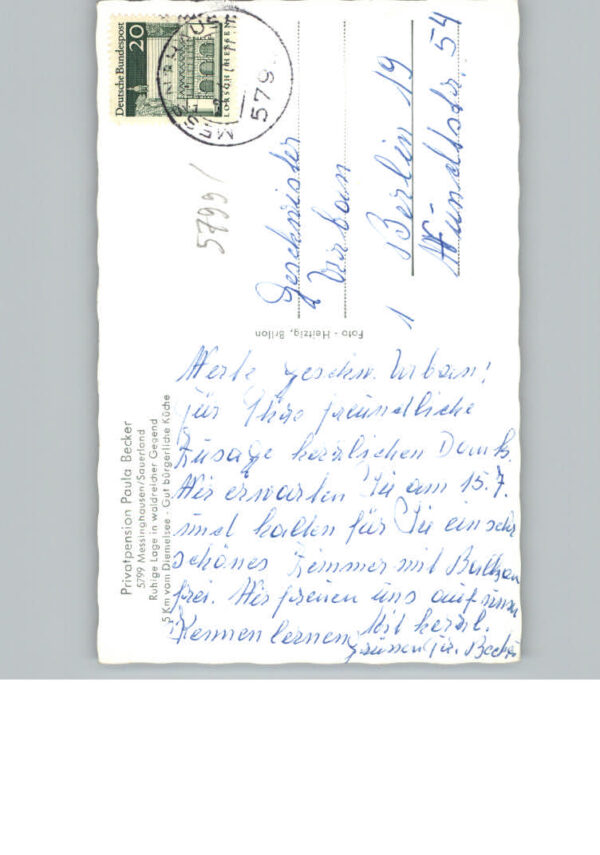 Privatpension Paula Becker
5799 Messinghausen/Sauerland
Ruhige Lage in waldreicher Gegend
5 Km vom Diemelsee - Gut bürgerliche Küche
Werte Geschw. Urban!
für Ihre freundliche
Zusage herzlichen Dank.
Wir erwarten Sie am 15.7.
und halten für Sie ein sehr
schönes Zimmer mit Balkon
frei. Wir freuen uns auf unser
Kennenlernen. Mit herzl.
Grüssen Becker
Foto - Heitzig, Brilon
Deutsche Bundespost
20
LORSCH/HESSEN
579
5799/
Geschwister
Urban
1 Berlin 19
Wundtstr. 54